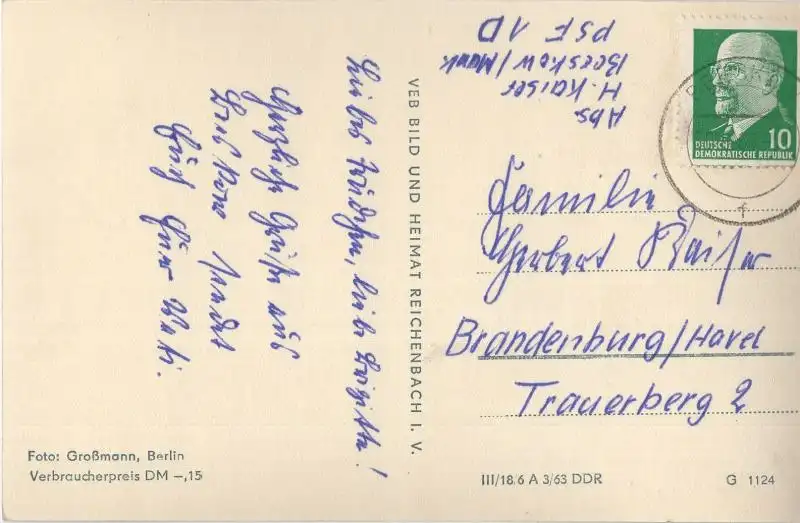 Liebes liebe Brigitte!
Herzliche Grüße aus
Beeskow sendet
Euch Euer Vati.
VEB BILD UND HEIMAT REICHENBACH I. V.
Abs.
H. Kaiser
Beeskow/Mark
PSF 1D
DEUTSCHE
DEMOKRATISCHE REPUBLIK
10
Familie
Herbert Kaiser
Brandenburg/Havel
Trauerberg 2
Foto: Großmann, Berlin
Verbraucherpreis DM –,15
III/18/6 A 3/63 DDR
G 1124